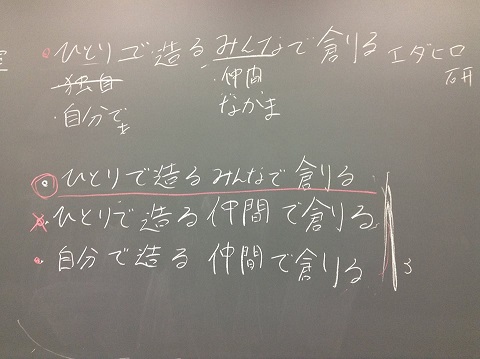 ひとりで造る みんなで創りる エダヒロ研
独自 仲間
自分で なかま
ひとりで造る みんなで創りる
ひとりで造る 仲間で創りる
自分で造る 仲間で創りる 3